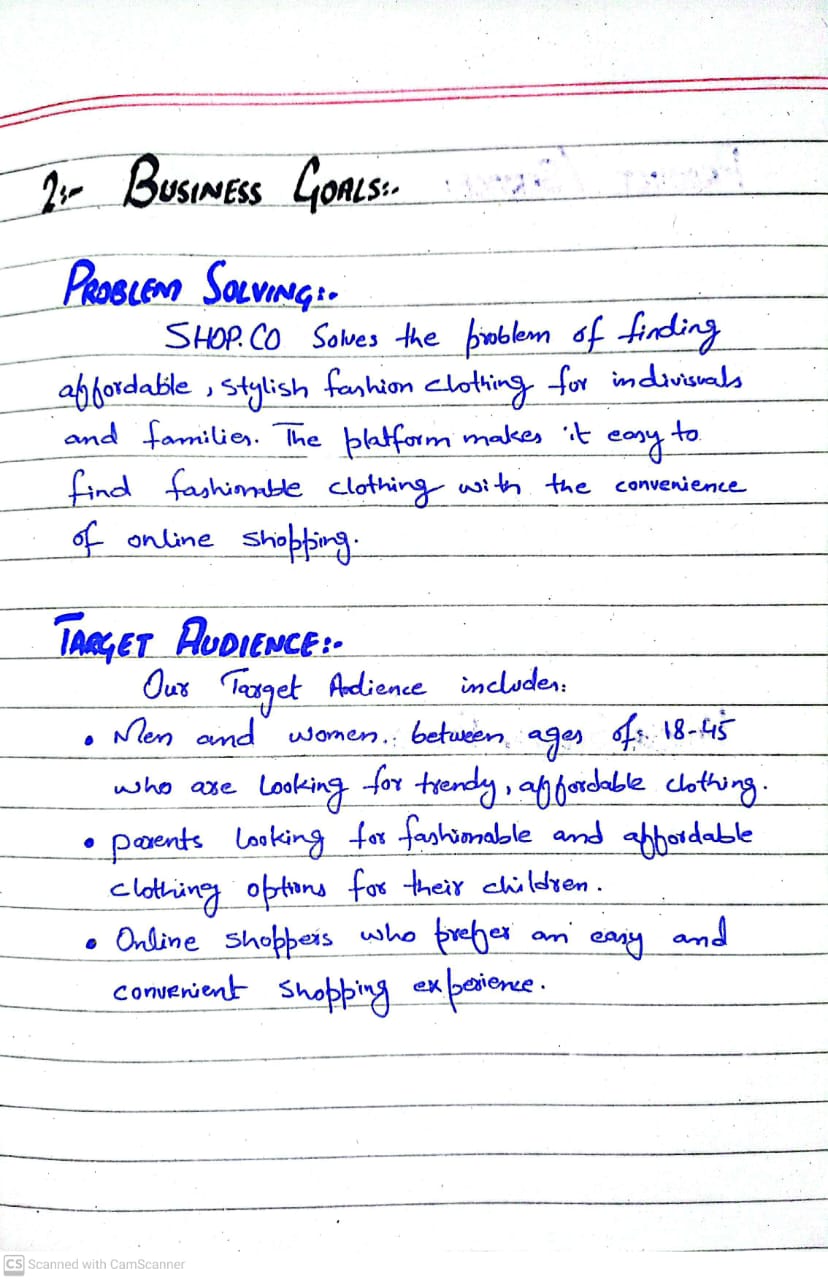 2:- BUSINESS GOALS:-
PROBLEM SOLVING:-
SHOP.CO Solves the problem of finding
affordable, stylish fashion clothing for indivisuals
and families. The platform makes it easy to
find fashionable clothing with the convenience
of online shopping.
TARGET AUDIENCE:-
Our Target Audience includes:
• Men and women. between ages of: 18-45
who are looking for trendy, affordable clothing.
• parents looking for fashionable and affordable
clothing options for their children.
• Online shoppers who prefer an easy and
convenient shopping experience.
CS Scanned with CamScanner